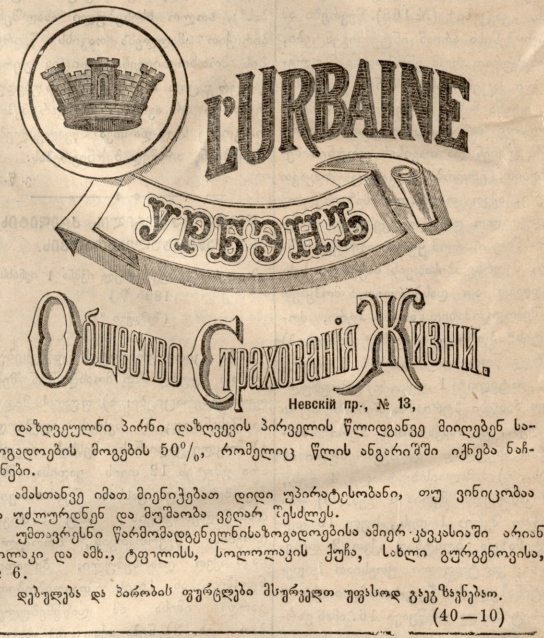 L'URBAINE
УРБЭНЪ
Общество Страхованія Жизни.
Невскій пр., № 13,
დაზღვეულნი პირნი დაზღვევის პირველის წლიდგანვე მიიღებენ სა-
ოგადოების მოგების 50%, რომელიც წლის ანგარიშში იქნება ნაჩ-
ნები.
ამასთანვე იმათ მიენიჭებათ დიდი უპირატესობანი, თუ ვინიცობაა
უძლურდნენ და მუშაობა ვეღარ შესძლეს.
უმთავრესნი წარმომადგენელნისაზოგადოებისა ამიერ-კავკასიაში არიან
ოლაკი და ამხ., ტფილისს, სოლოლაკის ქუჩა, სახლი გურგენოვისა,
6.
დებულება და პირობის ფურცლები მსურველთ უფასოდ გაეგზავნებათ.
(40—10)